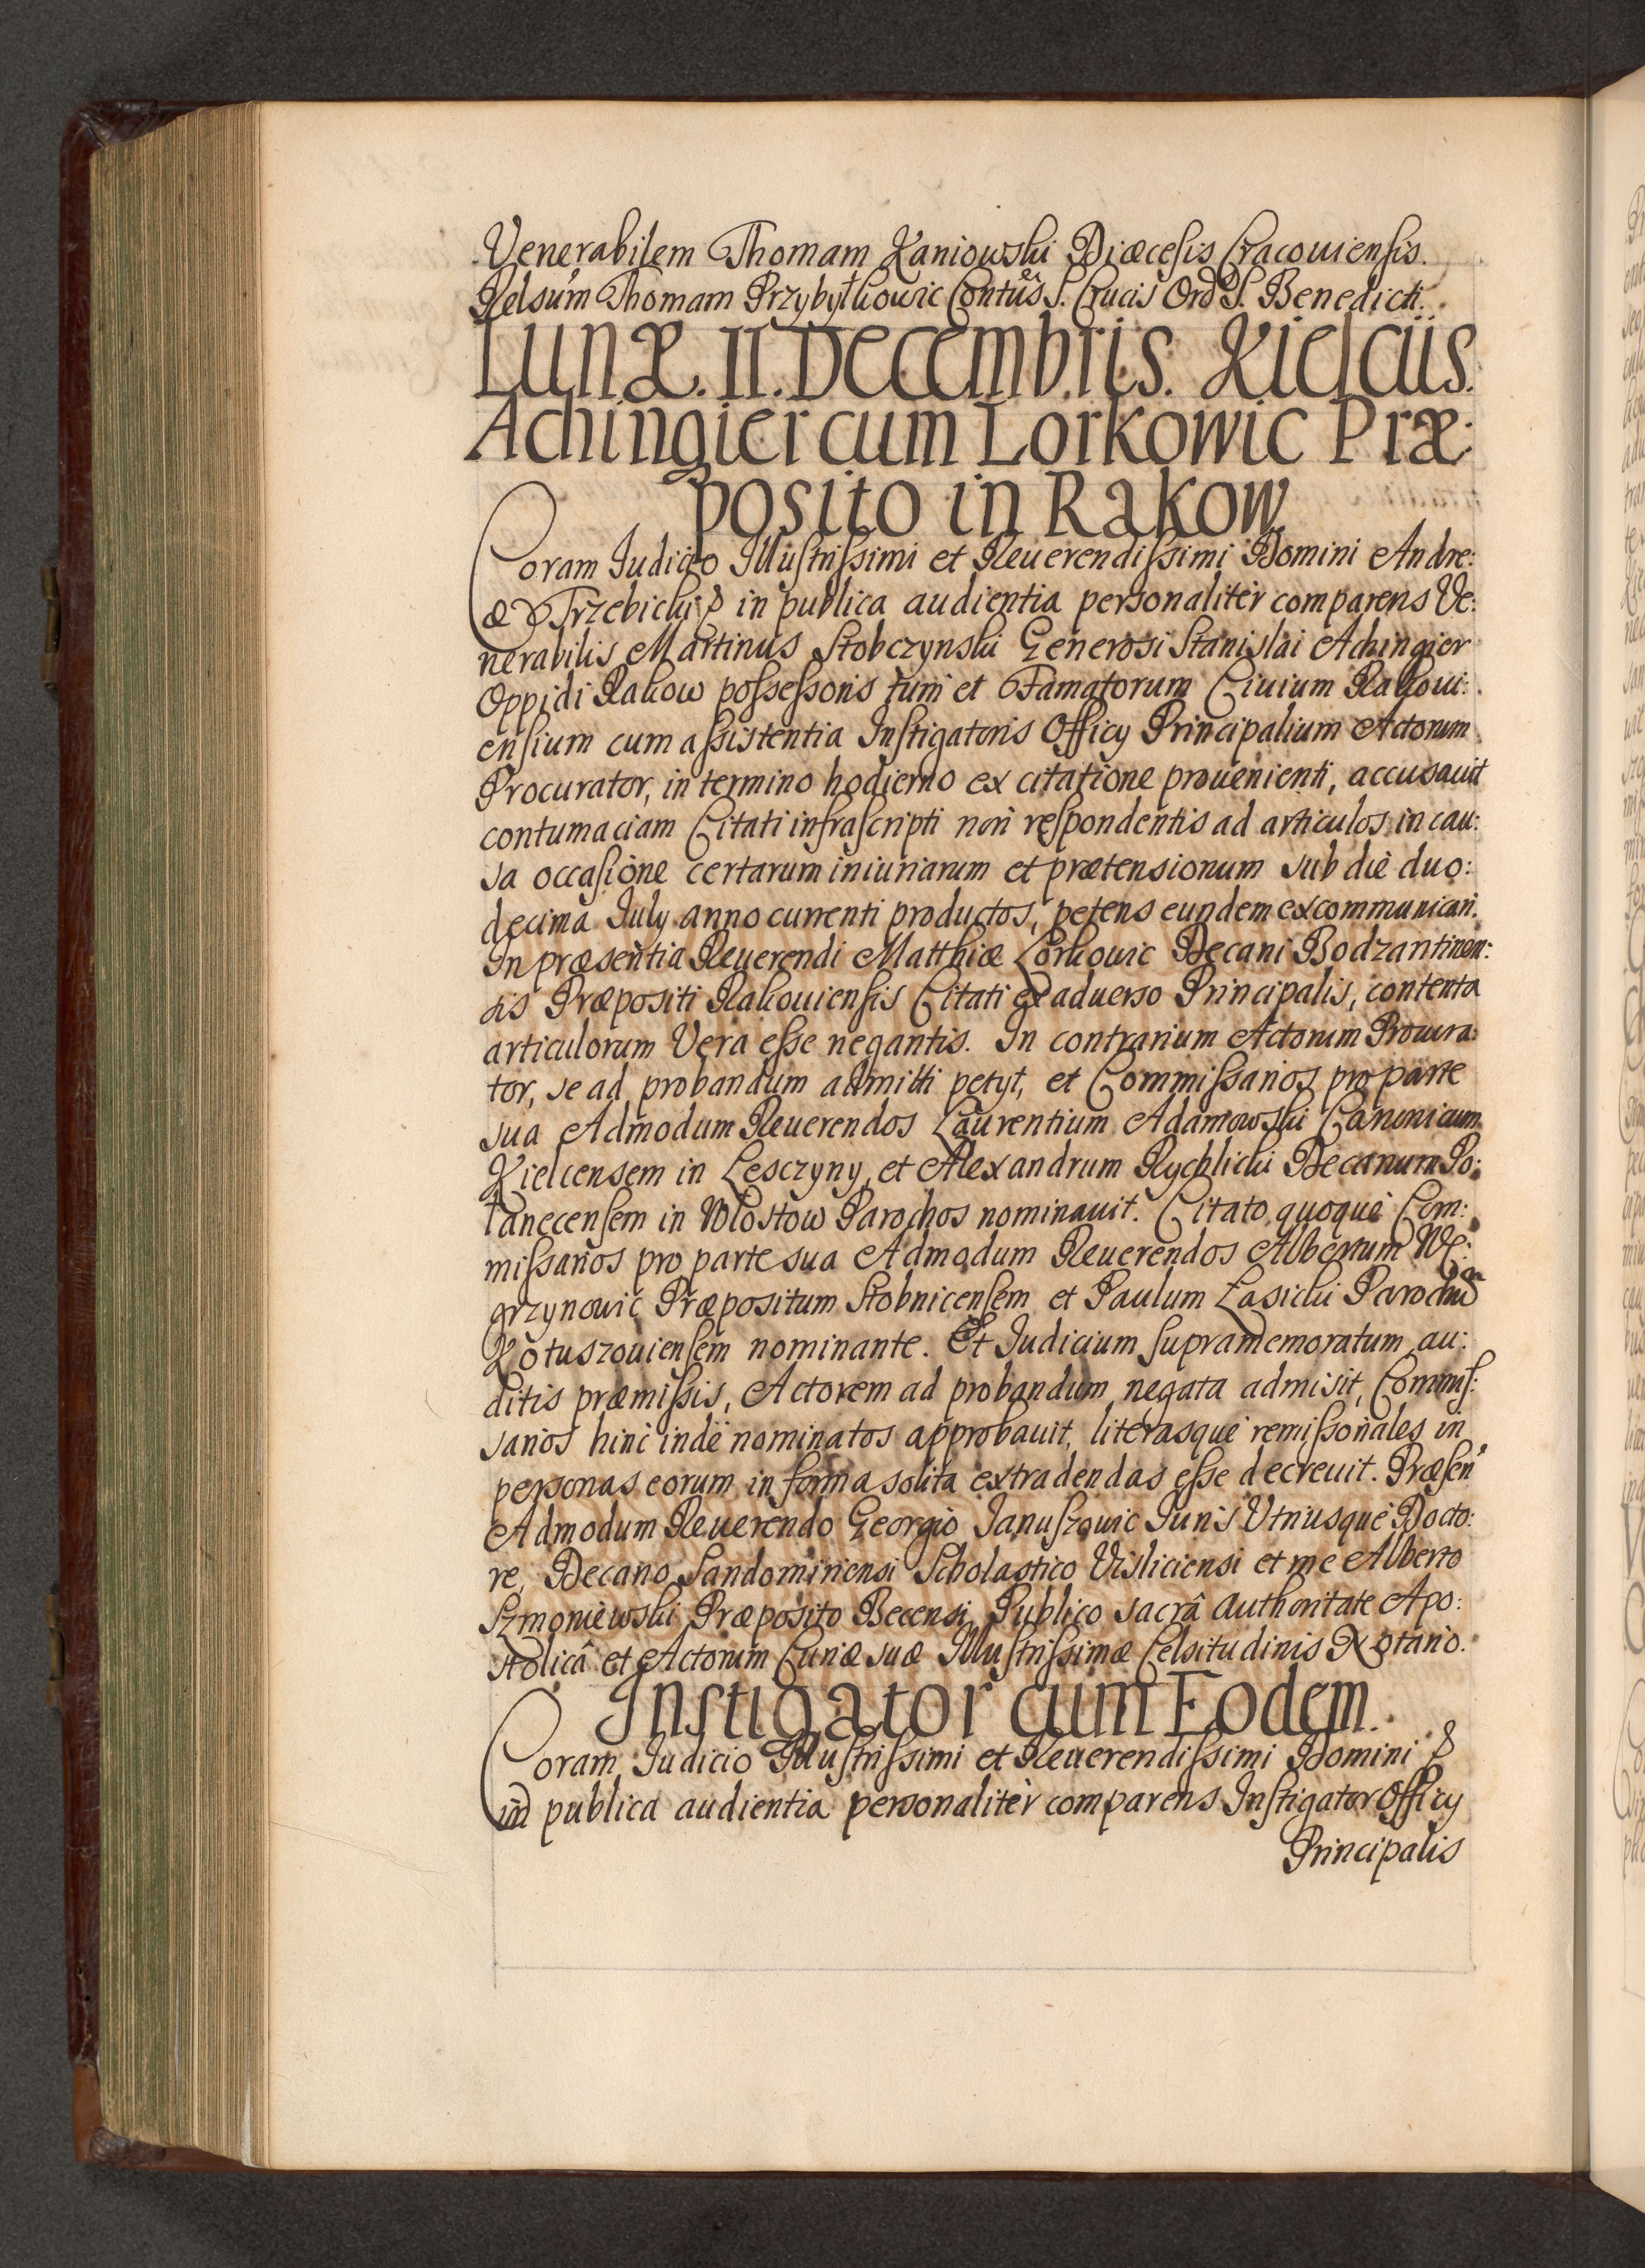 Venerabilem Thomam Kaniowski Diæcesis Cracouiensis.
Relsum Thomam Przybyłkowic Contūs S. Crucis Ord S. Benedicti.
Lunæ. II. Decembris. Kielciis.
Achingier cum Lorkowic Præ:
posito in Rakow
Coram Iudicio Illustrissimi et Reuerendissimi Domini Andre:
æ Trzebicki in publica audientia personalitèr comparens Ve:
nerabilis Martinus Stobczynski Generosi Stanislai Achingier
Oppidi Rakow possessoris tum et Famatorum Ciuium Rakoui:
ensium cum assistentia Instigatoris Officy Principalium Actorum
Procurator, in termino hodierno ex citatione prouenienti, accusauit
contumaciam Citati infrascripti non respondentis ad articulos in cau:
sa occasione certarum iniuriarum et prætensionum sub diè duo:
decima July anno currenti productos, petens eundem excommunicari.
In præsentia Reuerendi Matthiæ Lorkowic Decani Bodzantinen:
sis Præpositi Rakouiensis Citati ex aduerso Principalis, contenta
articulorum Vera esse negantis. In contrarium Actorum Procura:
tor, se ad probandum admitti petyt, et Commissarios pro parte
sua Admodum Reuerendos Laurentium Adamowski Canonicum
Kielcensem in Lesczyny, et Alexandrum Rychlicki Decanum Po:
lanecensem in Włostow Parochos nominauit. Citato quoquè Com:
missarios pro parte sua Admodum Reuerendos Albertum We:
grzynowic Præpositum Stobnicensem et Paulum Łasicki Parochū
Kotuszouiensem nominante. Et Iudicium supramemoratum au:
ditis præmissis, Actorem ad probandum negata admisit, Commis:
sarios hinc indè nominatos approbauit, literasquè remissoriales in
personas eorum in forma solita extradendas esse decreuit. Præsen
Admodum Reuerendo Georgio Ianuszowic Iuris Vtriusquè Docto:
re, Decano Sandomiriensi Scholastico Visliciensi et me Alberto
Szmoniewski Præposito Becensi Publico sacrâ Authoritate Apo:
stolicâ et Actorum Curiæ suæ Illustrissimæ Celsitudinis Notario.
Instigator cum Eodem.
Coram Iudicio Illustrissimi et Reuerendissimi Domini
in publica audientia personalitèr comparens Instigator Officy
Principalis